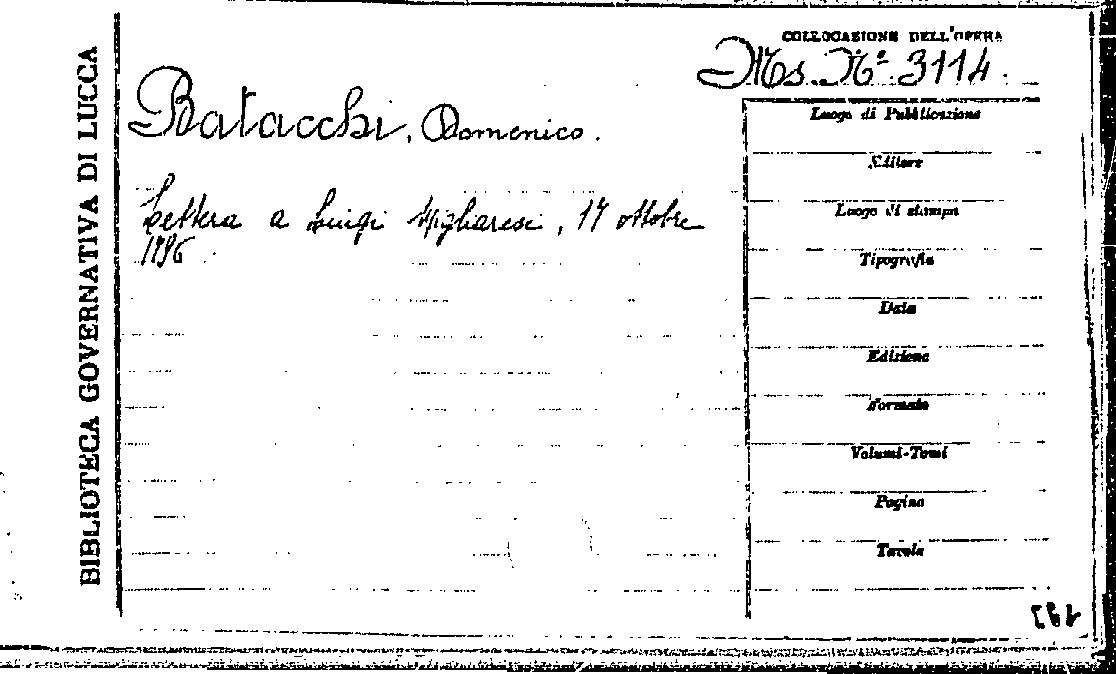 BIBLIOTECA GOVERNATIVA DI LUCCA
COLLOCAZIONE DELL'OPERA
Ms. Nº 3114.
Batacchi, Domenico.
Lettera a Luigi Migliaresi, 17 ottobre
1796.
Luogo di Pubblicazione
Editore
Luogo di stampa
Tipografia
Data
Edizione
Formato
Volumi-Tomi
Pagine
Tavole